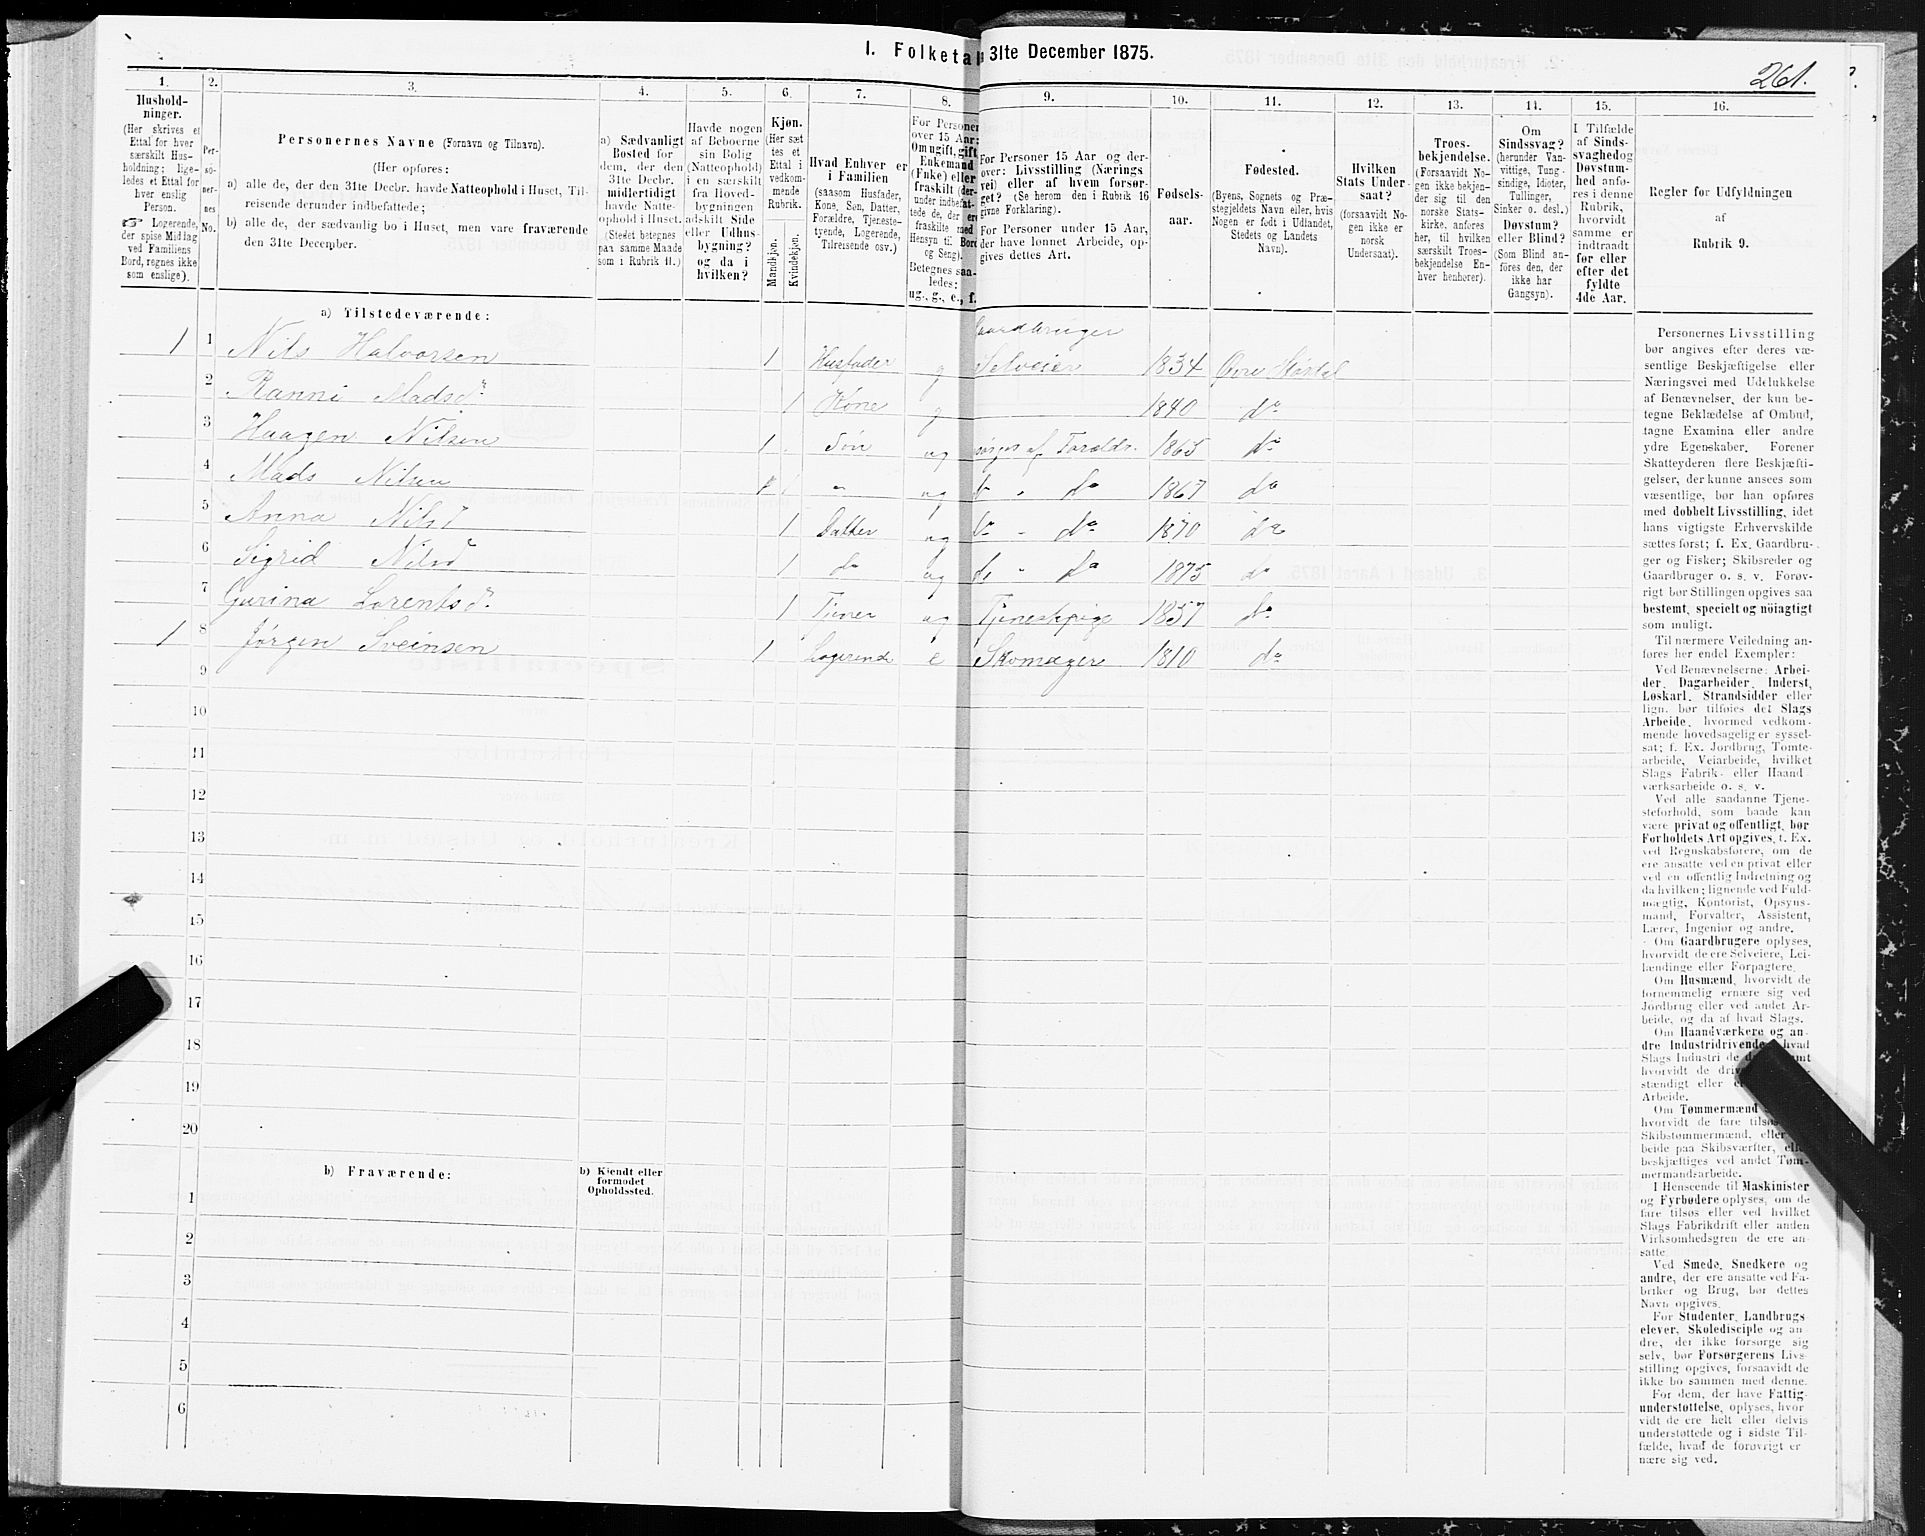 I. Folketal 31te December 1875.
261.
1. 2. 3. 4. 5. 6. 7. 8. 9. 10. 11. 12. 13. 14. 15. 16.
Husholdninger.
(Her skrives et
Ettal for hver
særskilt Husholdning; ligeledes et Ettal for
hver enslig
Person.
☞ Logerende,
der spise Middag
ved Familiens
Bord, regnes ikke
som enslige).
Personernes No.
Personernes Navne (Fornavn og Tilnavn).
(Her opføres:
a) alle de, der den 31te Decbr. havde Natteophold i Huset, Tilreisende derunder indbefattede;
b) alle de, der sædvanlig bo i Huset, men vare fraværende
den 31te December.
a) Sædvanligt
Bosted for
dem, der den
31te Decbr.
midlertidigt
havde Natteophold i Huset.
(Stedet betegnes
paa samme Maade
som i Rubrik 11.)
Havde nogen
af Beboerne
sin Bolig
(Natteophold)
i en særskilt
fra Hovedbygningen
adskilt Side
eller Udhusbygning?
og da i
hvilken?
Kjøn.
(Her sættes et
Ettal i
vedkommende
Rubrik.
Mandkjøn.
Kvindekjøn.
Hvad Enhver er
i Familien
(saasom Husfader,
Kone, Søn, Datter,
Forældre, Tjenestetyende, Logerende,
Tilreisende osv.)
For Personer
over 15 Aar:
Om ugift, gift,
Enkemand
(Enke) eller
fraskilt (derunder indbefattede de, der ere
fraskilte med
Hensyn til Bord
og Seng).
Betegnes saaledes:
ug., g., e., f.
For Personer 15 Aar og derover: Livsstilling (Næringsvei) eller af hvem forsørget? (Se herom den i Rubrik 16
givne Forklaring).
For Personer under 15 Aar,
der have lønnet Arbeide, opgives dettes Art.
Fødselsaar.
Fødested.
(Byens, Sognets og Præstegjeldets Navn eller, hvis
Nogen er født i Udlandet,
Stedets og Landets
Navn).
Hvilken
Stats Undersaat?
(forsaavidt Nogen ikke er
norsk
Undersaat).
Troesbekjendelse.
(Forsaavidt Nogen ikke bekjender sig til den
norske Statskirke, anføres
her, til hvilken
særskilt Troesbekjendelse Enhver henhører).
Om
Sindssvag?
(herunder Vanvittige, Tungsindige, Idioter,
Tullinger,
Sinker o. desl.)
Døvstum?
eller Blind?
(Som Blind anføres den, der
ikke har
Gangsyn).
I Tilfælde
af Sindssvaghed og
Døvstumhed
anføres i denne
Rubrik,
hvorvidt
samme er
indtraadt
før eller
efter det
fyldte
4de Aar.
Regler for Udfyldningen
af
Rubrik 9.
a) Tilstedeværende:
Gaardbruger
1 1 Nils Halvorsen 1 Husfader g Selveier 1834
2 Ranni Madsdr. 1 Kone g 1840 do
3 Haagen Nilsen 1 Søn ug 1865 do
4 Mads Nilsen 1 " ug do " do 1867 do
5 Anna Nilsd 1 Datter ug do " do 1870 do
6 Sigrid Nilsd 1 do ug do " do 1875 do
7 Gurina Lorentsdr. 1 Tjener ug Tjenestepige 1857 do
1 8 Jørgen Sveinsen 1 Logerende e Skomager 1810 do
9
10
11
12
13
14
15
16
17
18
19
20
b) Fraværende:
b) Kjendt eller
formodet
Opholdssted.
1
2
3
4
5
6
Personernes Livsstilling
bør angives efter deres væsentlige Beskjæftigelse eller
Næringsvei med Udelukkelse
af Benævnelser, der kun betegne Beklædelse af Ombud,
tagne Examina eller andre
ydre Egenskaber. Forener
Skatteyderen flere Beskjæftigelser, der kunne ansees som
væsentlige, bør han opføres
med dobbelt Livsstilling, idet
hans vigtigste Erhvervskilde
sættes først; f. Ex. Gaardbruger og Fisker; Skibsreder og
Gaardbruger o. s. v. Forøvrigt bør Stillingen opgives saa
bestemt, specielt og nöiagtigt
som muligt.
Til nærmere Veiledning anføres her endel Exempler:
Ved Benævnelserne: Arbeider, Dagarbeider, Inderst,
Løskarl, Strandsidder eller
lign. bør tilføies det Slags
Arbeide, hvormed vedkommende hovedsagelig er sysselsat; f. Ex. Jordbrug, Tomtearbeide, Veiarbeide, hvilket
Slags Fabrik- eller Haandværksarbeide o. s. v.
Ved alle saadanne Tjenesteforhold, som baade kan
være privat og offentligt, bør
Forholdets Art opgives, t. Ex.
ved Regnskabsførere, om de
ere ansatte ved en privat eller
ved en offentlig Indretning og
da hvilken; lignende ved Fuldmægtig, Kontorist, Opsynsmand, Forvalter, Assistent,
Lærer, Ingeniør og andre.
Om Gaardbrugere oplyses,
hvorvidt de ere Selveiere, Leilændinge eller Forpagtere.
Om Husmænd, hvorvidt de
fornemmelig ernære sig ved
Jordbrug eller ved andet Arbeide, og da af hvad Slags.
Om Haandværkere og andre Industridrivende, hvad
Slags Industri de
hvorvidt de
eller
Arbeide.
Om Tømmermænd
hvorvidt de fare tilsøs
Skibstømmermænd, eller
beide paa Skibsværfter, eller
beskjæftiges ved andet Tømmermandsarbeide.
I Henseende til Maskinister
og Fyrbødere oplyses, om de
fare tilsøs eller ved hvilket
Slags Fabrikdrift eller anden
Virksomhedsgren de ere ansatte.
Ved Smede, Snedkere og
andre, der ere ansatte ved Fabriker og Brug, bør dettes
Navn opgives.
For Studenter, Landbrugselever, Skoledisciple og andre, der ikke forsørge sig
selv, bør Forsørgerens Livsstilling opgives, forsaavidt de
ikke bo sammen med denne.
For dem, der have Fattigunderstøttelse, oplyses, hvorvidt de ere helt eller delvis
understøttede og i sidste Tilfælde, hvad de forøvrigt ernære sig ved.